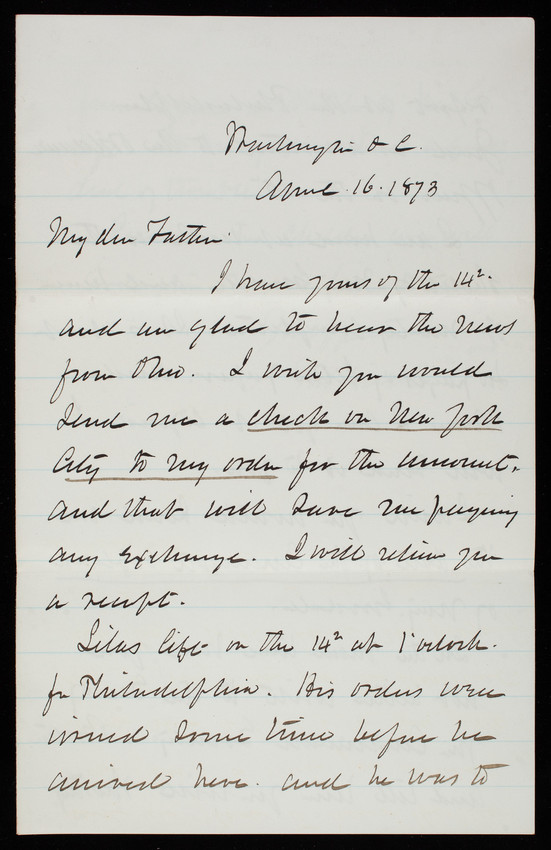 Washington D C.
April 16. 1873
My dear Father.
I have yours of the 14th
and am glad to hear the news
from Ohio. I wish you would
send me a check on New York
City to my order for the amount,
and that will save me paying
any exchange. I will return you
a receipt.
Silas left on the 14th at 1 o'clock
for Philadelphia. His orders were
issued some time before he
arrived here. and he was to